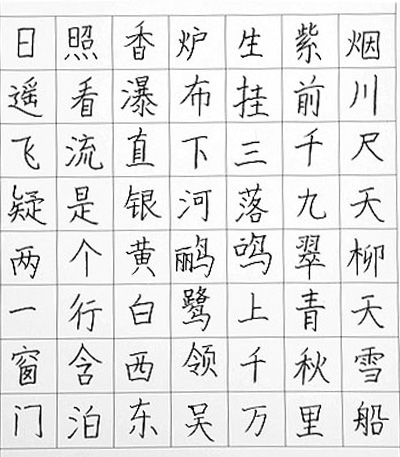 日照香炉生紫烟
遥看瀑布挂前川
飞流直下三千尺
疑是银河落九天
两个黄鹂鸣翠柳
一行白鹭上青天
窗含西领千秋雪
门泊东吴万里船